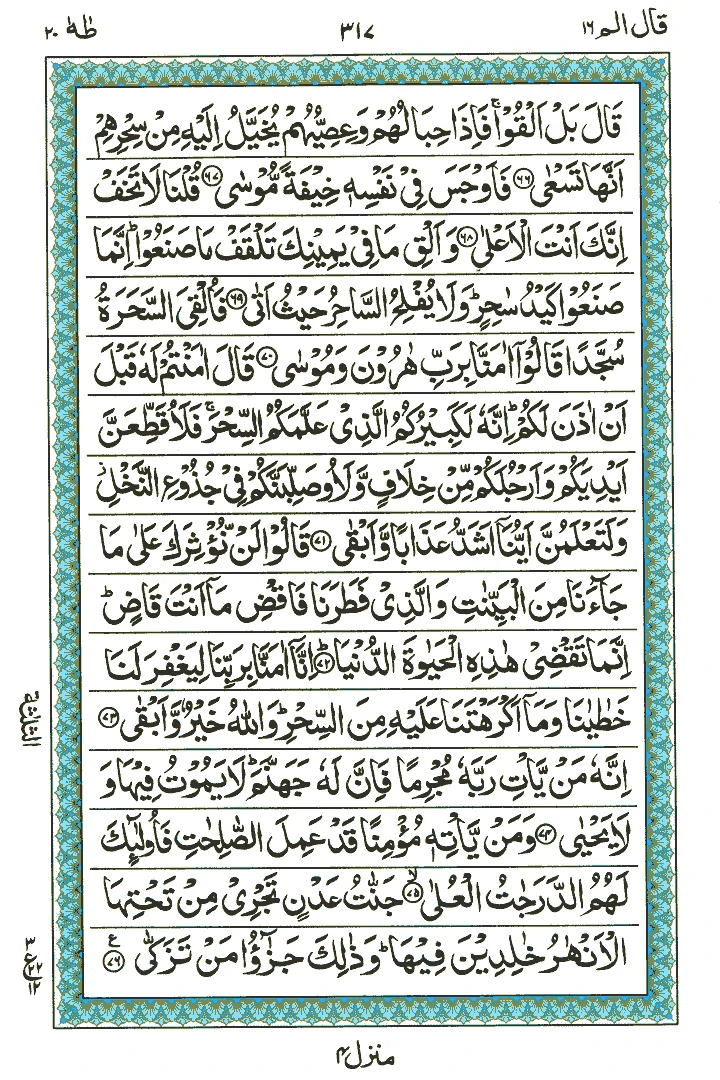 قال الم ١٦ ٣١٧ طٰهٰ ٢٠
قَالَ بَلْ اَلْقُوْا ۚ فَاِذَا حِبَالُهُمْ وَعِصِيُّهُمْ يُخَيَّلُ اِلَيْهِ مِنْ سِحْرِهِمْ
اَنَّهَا تَسْعٰى ﴿٦٦﴾ فَاَوْجَسَ فِيْ نَفْسِهٖ خِيْفَةً مُّوْسٰى ﴿٦٧﴾ قُلْنَا لَا تَخَفْ
اِنَّكَ اَنْتَ الْاَعْلٰى ﴿٦٨﴾ وَاَلْقِ مَا فِيْ يَمِيْنِكَ تَلْقَفْ مَا صَنَعُوْا ؕ اِنَّمَا
صَنَعُوْا كَيْدُ سٰحِرٍ ؕ وَلَا يُفْلِحُ السَّاحِرُ حَيْثُ اَتٰى ﴿٦٩﴾ فَاُلْقِيَ السَّحَرَةُ
سُجَّدًا قَالُوْٓا اٰمَنَّا بِرَبِّ هٰرُوْنَ وَمُوْسٰى ﴿٧٠﴾ قَالَ اٰمَنْتُمْ لَهٗ قَبْلَ
اَنْ اٰذَنَ لَكُمْ ؕ اِنَّهٗ لَكَبِيْرُكُمُ الَّذِيْ عَلَّمَكُمُ السِّحْرَ ۚ فَلَاُقَطِّعَنَّ
اَيْدِيَكُمْ وَاَرْجُلَكُمْ مِّنْ خِلَافٍ وَّلَاُوصَلِّبَنَّكُمْ فِيْ جُذُوْعِ النَّخْلِ ؗ
وَلَتَعْلَمُنَّ اَيُّنَآ اَشَدُّ عَذَابًا وَّاَبْقٰى ﴿٧١﴾ قَالُوْا لَنْ نُّؤْثِرَكَ عَلٰى مَا
جَآءَنَا مِنَ الْبَيِّنٰتِ وَالَّذِيْ فَطَرَنَا فَاقْضِ مَآ اَنْتَ قَاضٍ ؕ
اِنَّمَا تَقْضِيْ هٰذِهِ الْحَيٰوةَ الدُّنْيَا ؕ ﴿٧٢﴾ اِنَّآ اٰمَنَّا بِرَبِّنَا لِيَغْفِرَ لَنَا
خَطٰيٰنَا وَمَآ اَكْرَهْتَنَا عَلَيْهِ مِنَ السِّحْرِ ؕ وَاللّٰهُ خَيْرٌ وَّاَبْقٰى ﴿٧٣﴾
الثلثة
اِنَّهٗ مَنْ يَّاْتِ رَبَّهٗ مُجْرِمًا فَاِنَّ لَهٗ جَهَنَّمَ ؕ لَا يَمُوْتُ فِيْهَا وَ
لَا يَحْيٰى ﴿٧٤﴾ وَمَنْ يَّاْتِهٖ مُؤْمِنًا قَدْ عَمِلَ الصّٰلِحٰتِ فَاُولٰٓئِكَ
لَهُمُ الدَّرَجٰتُ الْعُلٰى ۙ ﴿٧٥﴾ جَنّٰتُ عَدْنٍ تَجْرِيْ مِنْ تَحْتِهَا
الْاَنْهٰرُ خٰلِدِيْنَ فِيْهَا ؕ وَذٰلِكَ جَزٰٓؤُا مَنْ تَزَكّٰى ﴿٧٦﴾ ع
٣
ع ٢٢
١٢
منزل ٤